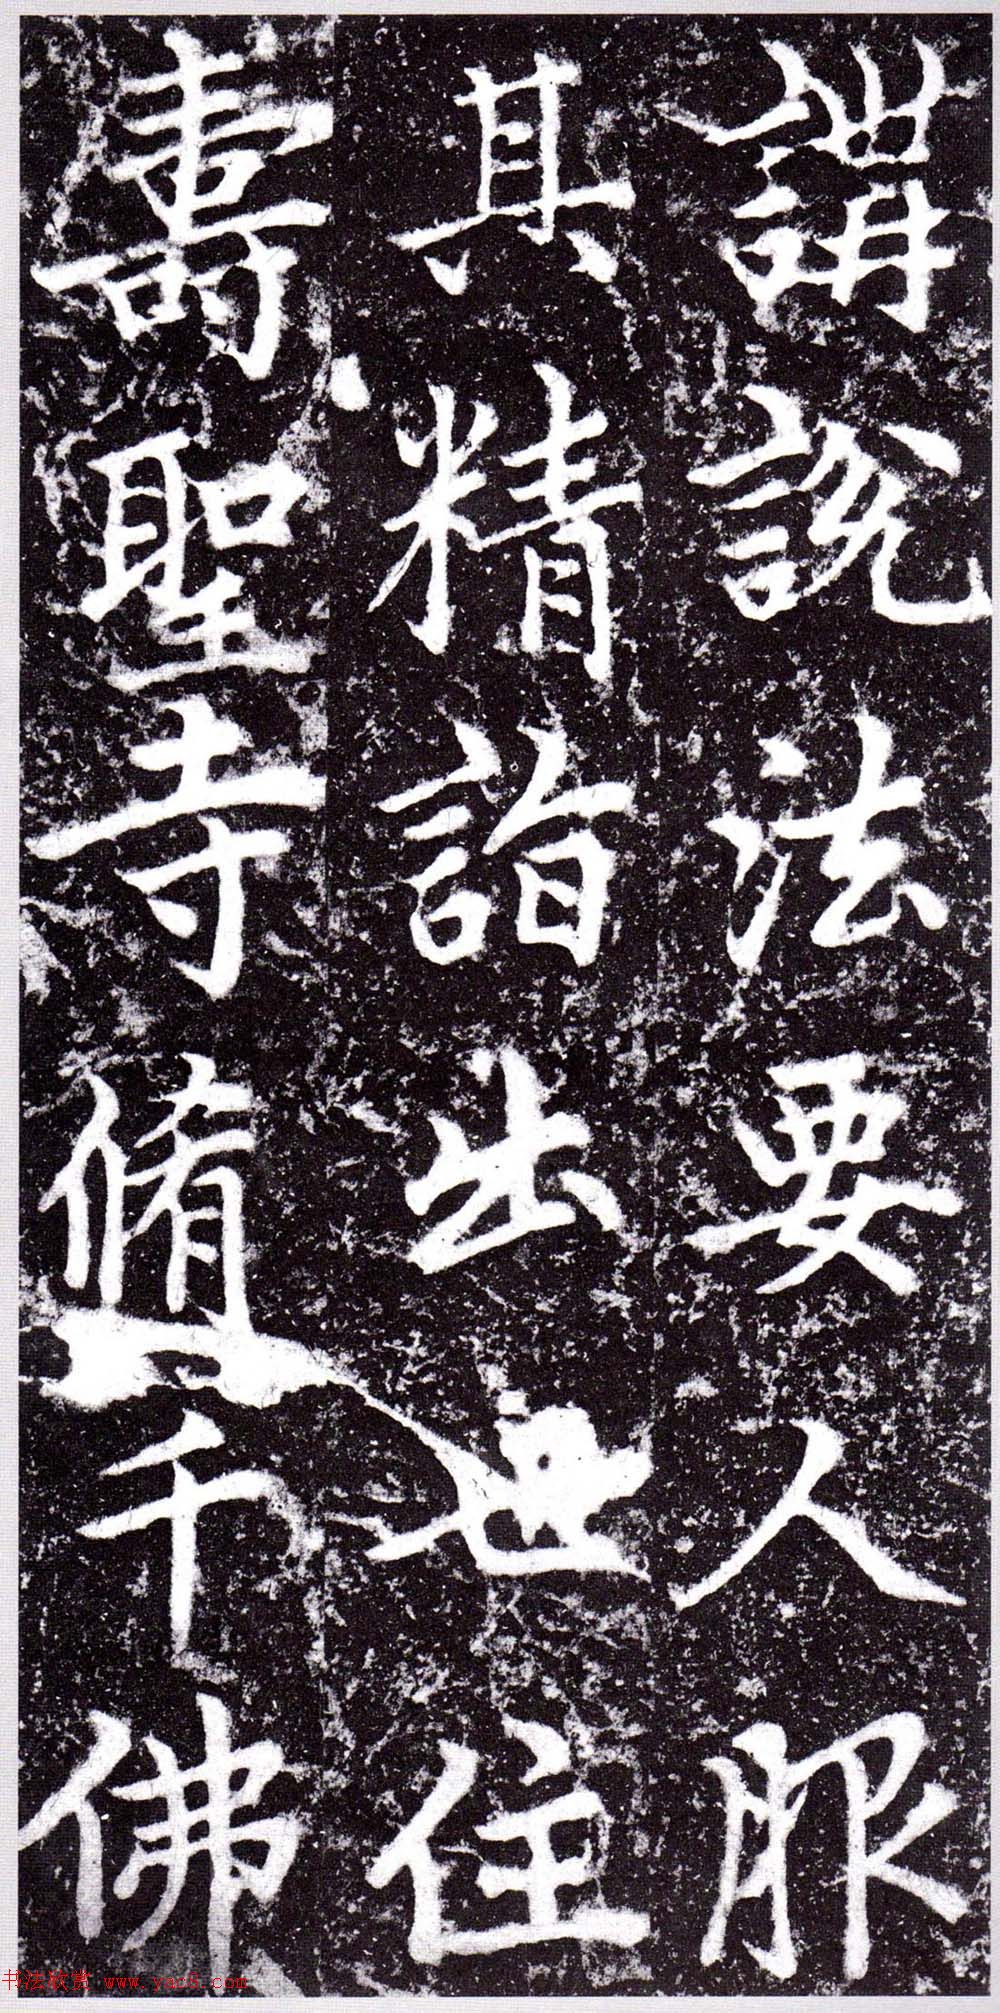 講說法要人服
其精詣出世住
壽聖寺脩千佛
书法欣赏 www.yac8.com